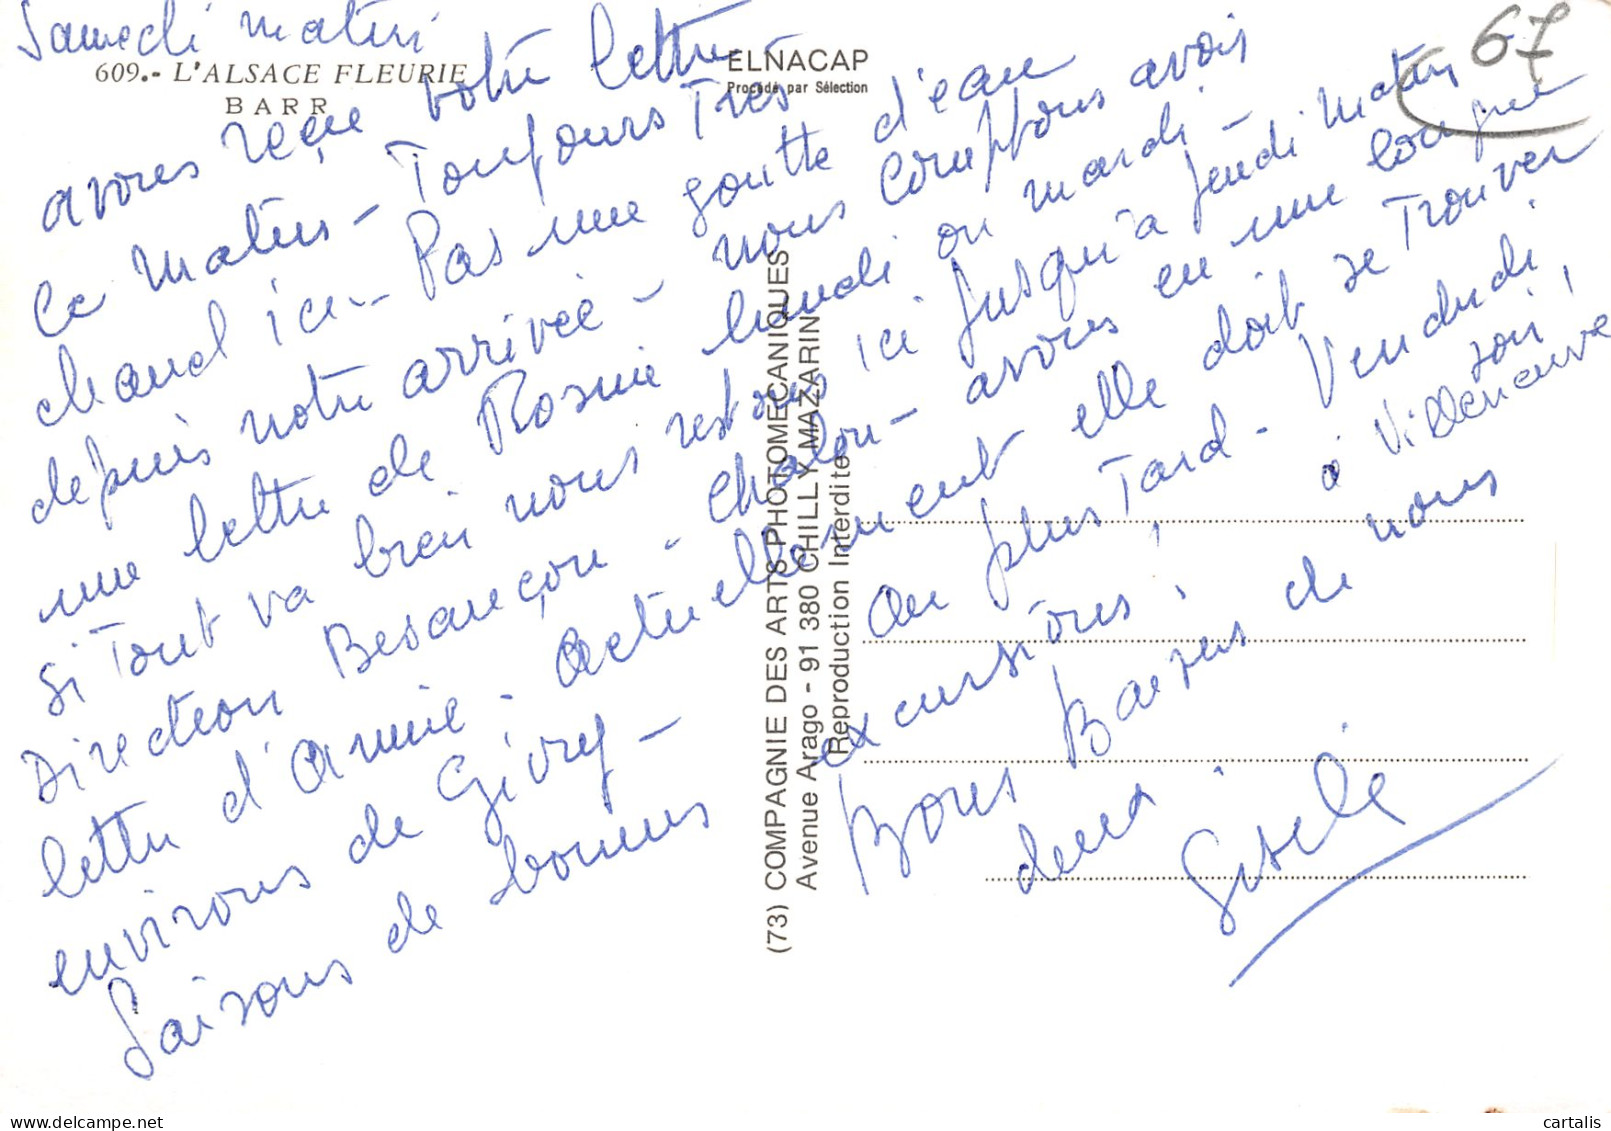 Samedi matin
609.- L'ALSACE FLEURIE
BARR
ELNACAP
Procédé par Sélection
67
avons reçue votre lettre
ce matin - Toujours Très
chaud ici - Pas une goutte d'eau
depuis notre arrivée - nous comptons avois
une lettre de Rosine lundi ou mardi -
si Tout va bien nous restons ici jusqu'à jeudi matin
Direction Besançon - Chalon - avons eu une longue
lettre d'Annie - actuellement elle doit se Trouver
environs de Givry - ou plus Tard - Vendredi
soir, à Villeneuve
Faisons de bonnes excursions,
Bons Baisers de nous
deux.
Gisèle
(73) COMPAGNIE DES ARTS PHOTOMECANIQUES
Avenue Arago - 91 380 CHILLY MAZARIN
Reproduction Interdite
cartalis
www.delcampe.net